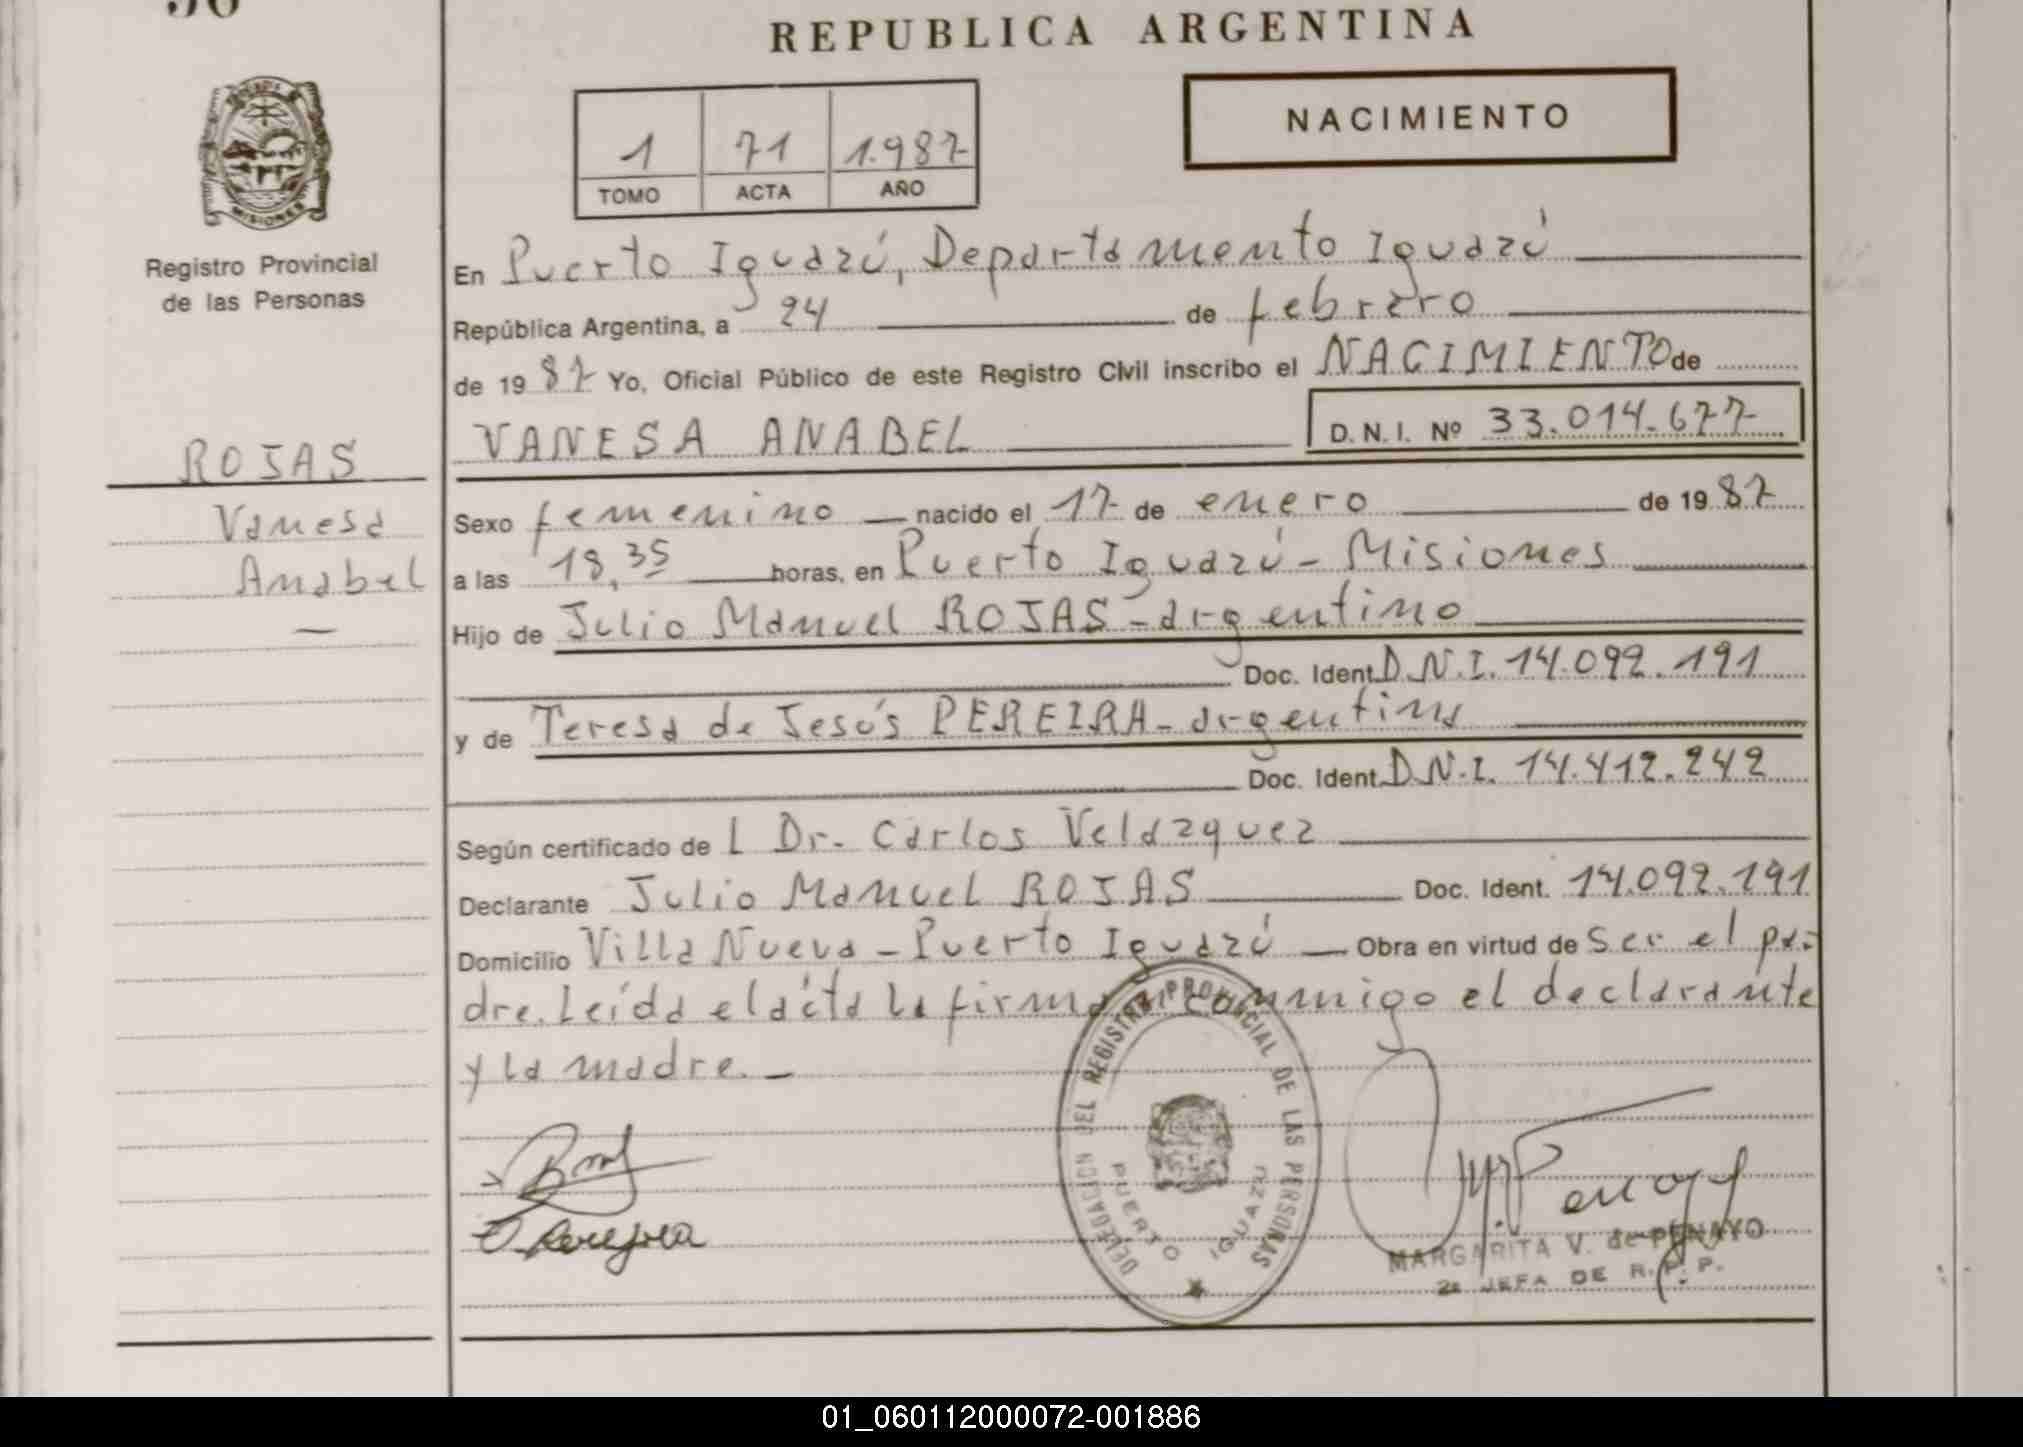 REPUBLICA ARGENTINA
NACIMIENTO
1 71 1.987
TOMO ACTA AÑO
MISIONES
Registro Provincial
de las Personas
ROJAS
Vanesa
Anabel
En Puerto Iguazú, Departamento Iguazú
República Argentina, a 24 de febrero
de 1987 Yo, Oficial Público de este Registro Civil inscribo el NACIMIENTO de
VANESA ANABEL D.N.I. Nº 33.014.677
Sexo femenino — nacido el 17 de enero de 1987
a las 18,35 horas, en Puerto Iguazú - Misiones
Hijo de Julio Manuel ROJAS - argentino
Doc. Ident. D.N.I. 14.092.191
y de Teresa de Jesús PEREIRA - argentina
Doc. Ident. D.N.I. 14.412.242
Según certificado de L Dr. Carlos Velazquez
Declarante Julio Manuel ROJAS Doc. Ident. 14.092.191
Domicilio Villa Nueva - Puerto Iguazú — Obra en virtud de ser el pa-
dre. Leída el acta la firman conmigo el declarante
y la madre. —
DELEGACION DEL REGISTRO PROVINCIAL DE LAS PERSONAS
PUERTO IGUAZU
MARGARITA V. de PENAYO
2a JEFA DE R. P. P.
01_060112000072-001886